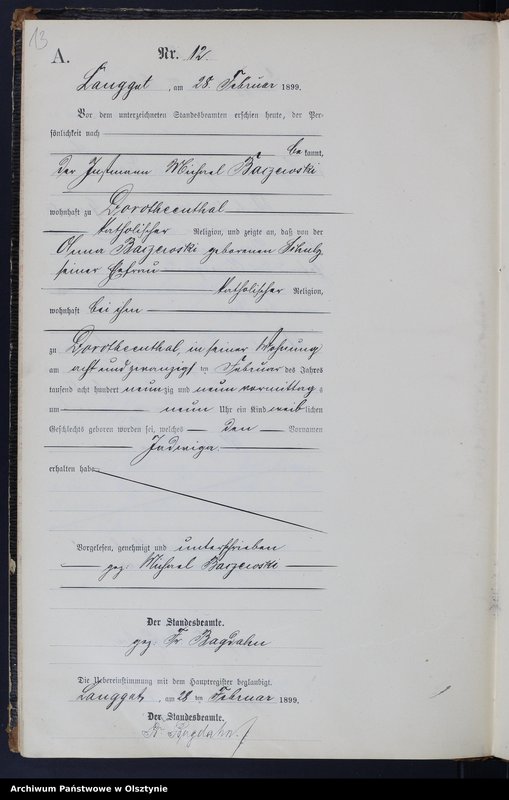 13
A.
Nr. 12.
Langgut, am 28. Februar 1899.
Vor dem unterzeichneten Standesbeamten erschien heute, der Per-
sönlichkeit nach
be kannt,
der Instmann Michael Baczewski
wohnhaft zu Dorotheenthal
katholischer Religion, und zeigte an, daß von der
Anna Baczewski geborenen Schulz
seiner Ehefrau
katholischer Religion,
wohnhaft bei ihm
zu Dorotheenthal, in seiner Wohnung
am acht und zwanzigsten Februar des Jahres
tausend acht hundert neunzig und neun vormittags
um neun Uhr ein Kind weiblichen
Geschlechts geboren worden sei, welches den Vornamen
Jadwiga
erhalten habe.
Vorgelesen, genehmigt und unterschrieben
gez: Michael Baczewski
Der Standesbeamte.
gez Fr. Bagdahn
Die Uebereinstimmung mit dem Hauptregister beglaubigt.
Langgut, am 28 ten Februar 1899.
Der Standesbeamte.
Fr. Bagdahn
Archiwum Państwowe w Olsztynie